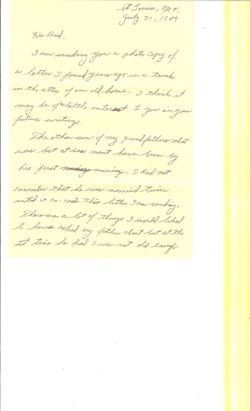 St Louis, Mo.
July 31, 1989
Hi Bud.
I am sending you a photo copy of
a letter I found years ago in a trunk
in the attic of our old house. I think it
may be of little interest to you in your
future writings.
The other son of my grandfathers that
was lost at sea must have been by
his first marriage. I did not
remember that he was married twice
until I re-read this letter I am sending.
There are a lot of things I would liked
to have asked my father about but at the
time he died I was not old enough